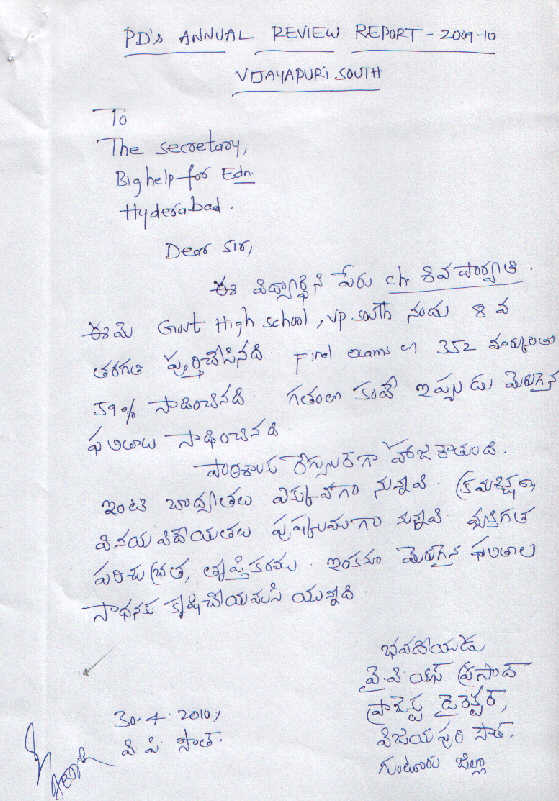 PD's ANNUAL REVIEW REPORT - 2009-10
VIJAYAPURI SOUTH
To
The secretary,
Bighelp for Edn
Hyderabad.
Dear Sir,
ఈ విద్యార్థిని పేరు ch శివ పార్వతి.
ఈమె Govt High school, v.p. south నందు 8 వ
తరగతి పూర్తిచేసినది Final exams లో 352 మార్కులతో
59% సాధించినది గతంలో కంటే ఇప్పుడు మెరుగైన
ఫలితాలు సాధించినది
పాఠశాలకు రెగ్యులర్‌గా హాజరౌతుంది.
ఇంటి బాధ్యతలు ఎక్కువగా నున్నవి. క్రమశిక్షణ,
వినయ విధేయతలు పుష్కలముగా నున్నవి. వ్యక్తిగత
పరిశుభ్రత, తృప్తికరము. ఇంకనూ మెరుగైన ఫలితాల
సాధనకు కృషిచేయవలసి యున్నది.
భవదీయుడు
వై.వి.యస్ ప్రసాద్
ప్రాజెక్టు డైరెక్టర్,
విజయపురి సౌత్.
గుంటూరు జిల్లా
30.4.2010,
వి.పి. సౌత్.